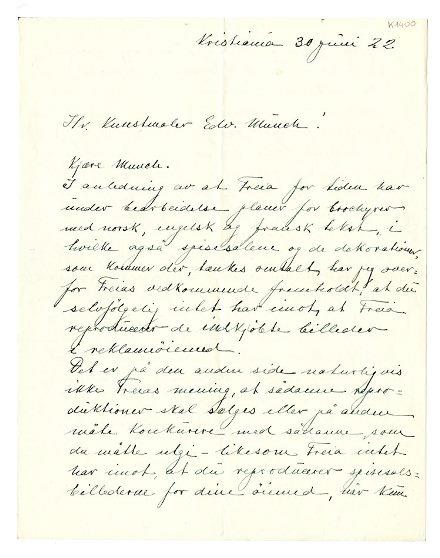 K1400
Kristiania 30 juni 22.
Hr. Kunstmaler Edv. Munch!
Kjære Munch.
I anledning av at Freia for tiden har
under bearbeidelse planer for brochyrer
med norsk, engelsk og fransk tekst, i
hvilke også spisesalene og de dekorationer,
som kommer der, tænkes omtalt, har jeg over-
for Freias vedkommende fremholdt, at du
selvfølgelig intet har imot, at Freia
reproducerer de indkjøbte billeder
i reklameøiemed.
Det er på den anden side naturligvis
ikke Freias mening, at sådanne repro-
duktioner skal sælges eller på anden
måte konkurere med sådanne, som
du måtte utgi – likesom Freia intet
har imot, at du reproducerer spisesals-
billederne for dine øiemed, når kun